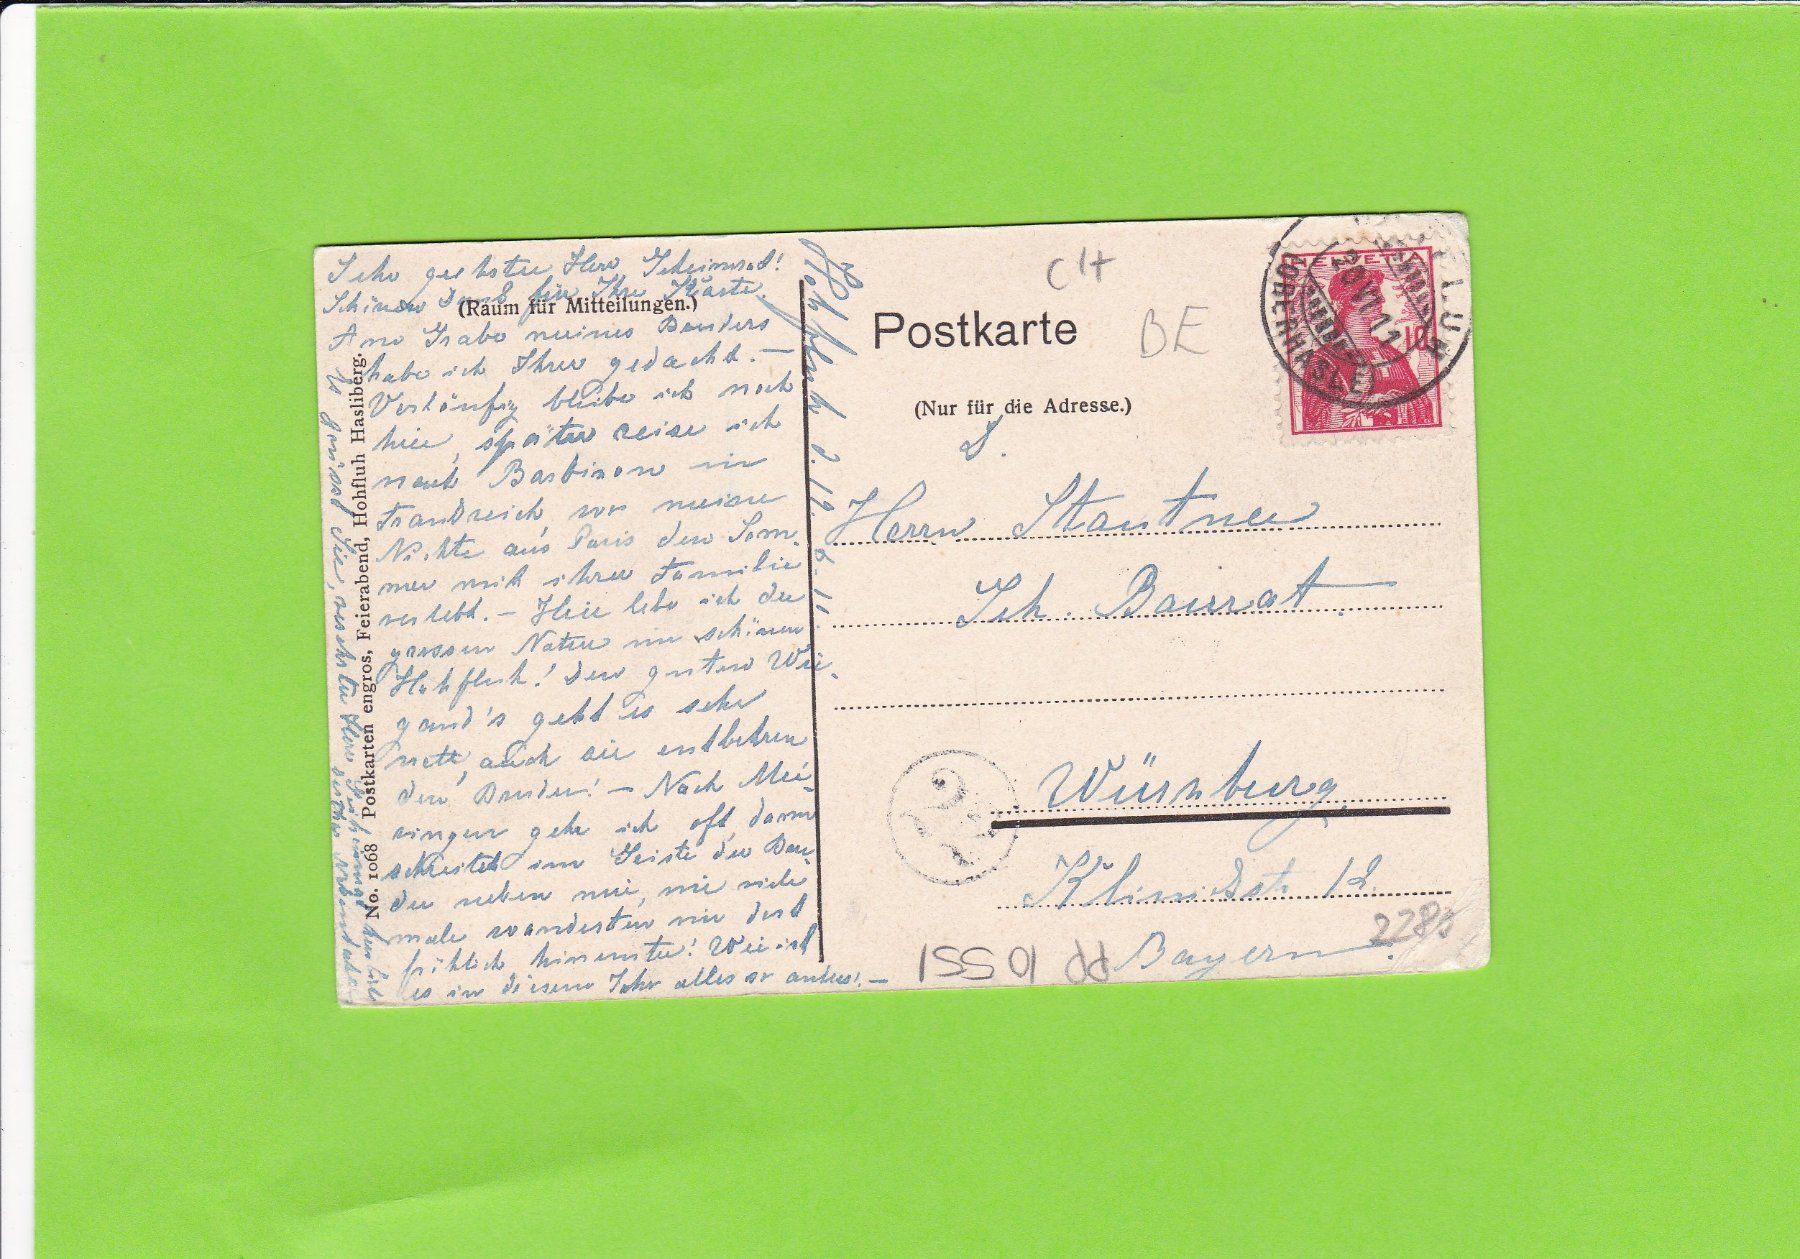 Sehr geehrter Herr Geheimrad!
Schönen Dank für Ihre Karte.
(Raum für Mitteilungen.)
Am Grabe meines Bruders
habe ich Ihrer gedacht. —
Vorläufig bleibe ich noch
hier, später reise ich
nach Barbizon in
Frankreich, wo meine
Nichte aus Paris den Som-
mer mit ihrer Familie
verlebt. — Hier lebe ich der
grossen Natur im schönen
Hohfluh! Den guten Wie-
gand's geht es sehr
nett, auch sie entbehren
den Bruder! — Nach Mei-
ringen gehe ich oft, dann
schreitet im Geiste der Bru-
der neben mir, wie viele
male wanderten wir dort
fröhlich hinunter! Wie ist
es in diesem Jahr alles so anders! —
Es grüsst Sie, verehrter Herr Geheimrat
No. 1068 Postkarten engros, Feierabend, Hohfluh Hasliberg.
Hohfluh d. 19. 6. 11.
CH
BE
Postkarte
(Nur für die Adresse.)
HELVETIA
10
20 VI 11
(OBERHASLE)
S.
Herrn Stautner
Geh. Baurat.
Würzburg
Klinikstr. 12.
Bayern.
2283
PP 10 551